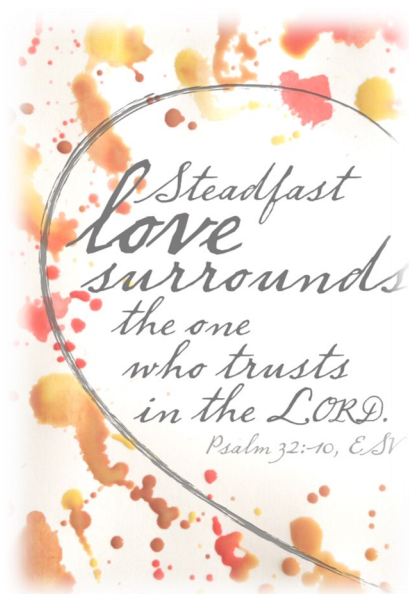 Steadfast
love
surrounds
the one
who trusts
in the LORD.
Psalm 32:10, ESV